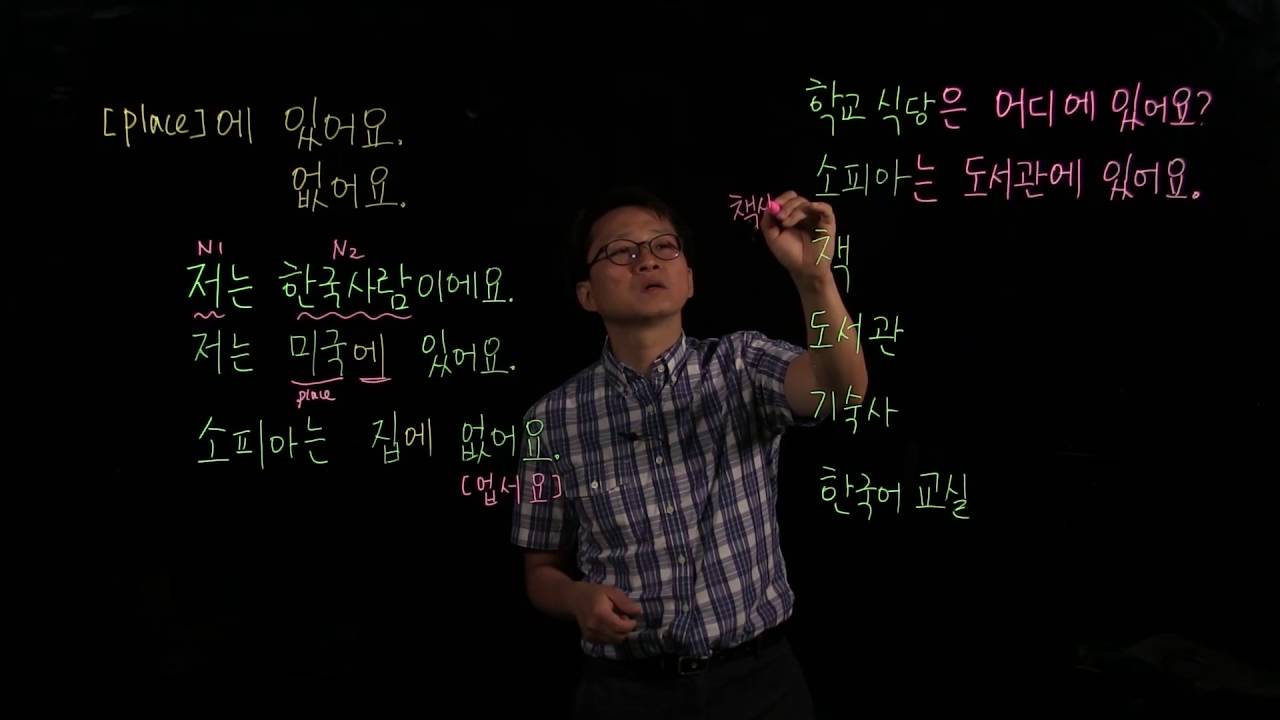 [place]에 있어요.
없어요.
N1 N2
저는 한국사람이에요.
저는 미국에 있어요.
place
소피아는 집에 없어요.
[업서요]
학교 식당은 어디에 있어요?
소피아는 도서관에 있어요.
책
도서관
기숙사
한국어 교실